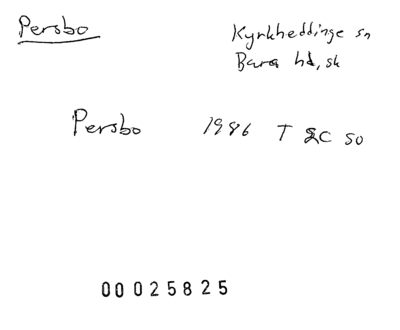 Persbo
Kyrkheddinge sn
Bara hd, sk
Persbo 1986 T 2C SO
00025825